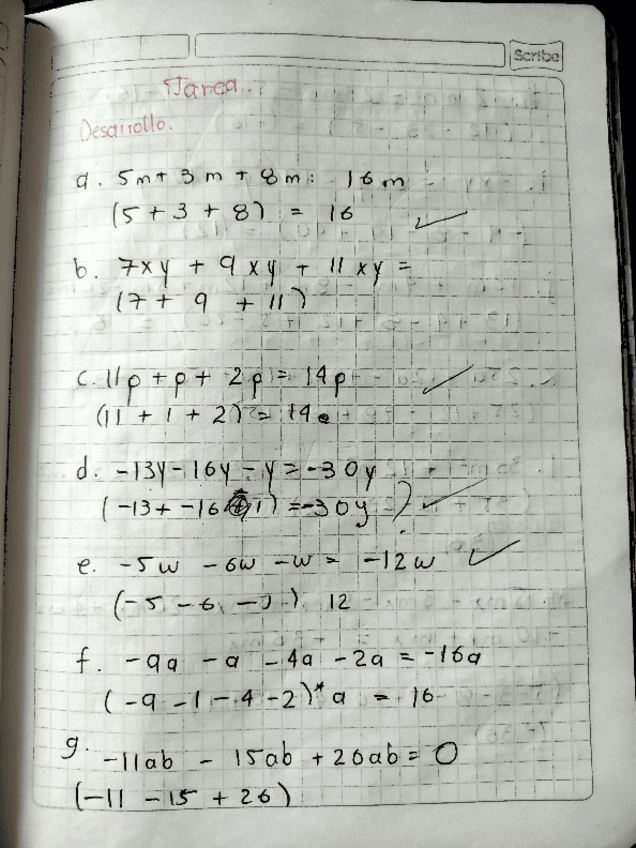 Scribe
Tarea.
Desarrollo.
a. 5m + 3m + 8m = 16m
(5 + 3 + 8) = 16
b. 7xy + 9xy + 11xy =
(7 + 9 + 11)
c. 11p + p + 2p = 14p
(11 + 1 + 2) = 14
d. -13y - 16y - y = -30y
(-13 + -16 1) = -30y
e. -5w - 6w - w = -12w
(-5 - 6 - 1) 12
f. -9a - a - 4a - 2a = -16a
(-9 - 1 - 4 - 2)* a = 16
g. -11ab - 15ab + 26ab = 0
(-11 - 15 + 26)